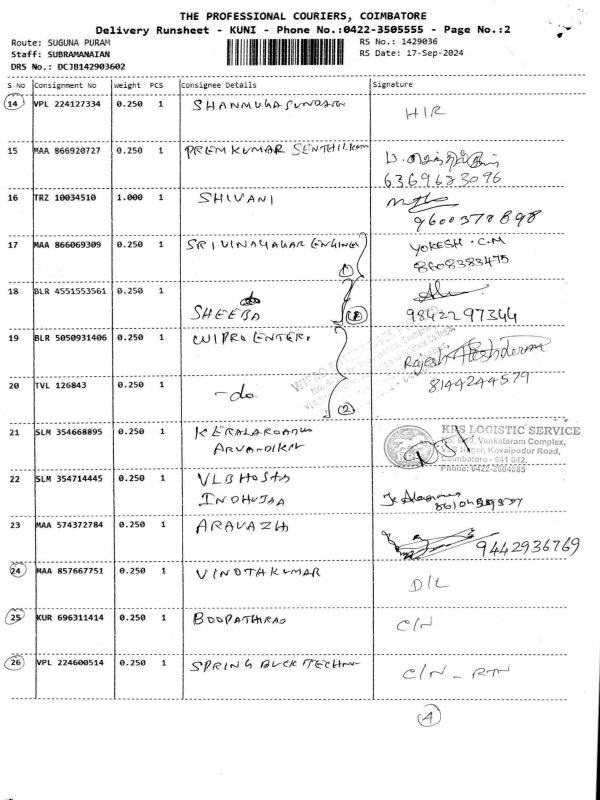 THE PROFESSIONAL COURIERS, COIMBATORE
Delivery Runsheet - KUNI - Phone No.:0422-3505555 - Page No.:2
Route: SUGUNA PURAM RS No.: 1429036
Staff: SUBRAMANAIAN RS Date: 17-Sep-2024
DRS No.: DCJB142903602
S No Consignment No Weight PCS Consignee Details Signature
14 VPL 224127334 0.250 1 SHANMUGASUNDARM
HIR
15 MAA 866920727 0.250 1 PREM KUMAR SENTHILKUM
6369683096
16 TRZ 10034510 1.000 1 SHIVANI
9600378898
17 MAA 866069309 0.250 1 SRI VINAYAGAR ENGINEE YOKESH . C.M
① 8608383475
18 BLR 4551553561 0.250 1
SHEEBA 9842297344
19 BLR 5050931406 0.250 1 WIPRO ENTER. Rajesh
8144244579
20 TVL 126843 0.250 1 -do
②
21 SLM 354668895 0.250 1 KBS LOGISTIC SERVICE
Venkataram Complex,
Nagar, Kovaipudur Road,
Coimbatore - 641 042.
Phone: 0422-2604085
22 SLM 354714445 0.250 1 VLB HOSTS
INDHUJAA
23 MAA 574372784 0.250 1 ARAVAZH
9442936769
24 MAA 857667751 0.250 1 VINOTHKUMAR
D/L
25 KUR 696311414 0.250 1 BOOPATHIRAJ
C/N
26 VPL 224600514 0.250 1 SPRING BUCK TECHNO
C/N - RTN
④